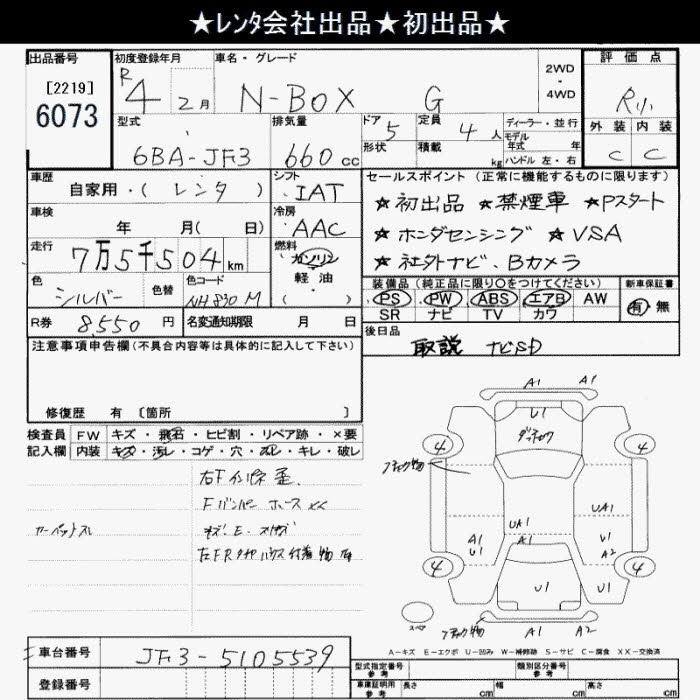 ★レンタ会社出品★初出品★
出品番号 初度登録年月 車名・グレード 2WD・4WD 評価点
[2219]
6073 R4 2月 N-BOX G R小
型式 排気量 ドア 5 定員 4人 ディーラー・並行 外装 内装
6BA-JF3 660cc 形状 積載 kg モデル年式 年 ハンドル 左・右 C C
車歴 自家用・(レンタ) シフト IAT
セールスポイント (正常に機能するものに限ります)
★初出品 ★禁煙車 ★Pスタート
車検 年 月( 日) 冷房 AAC
★ホンダセンシング ★VSA
走行 7万5千504km 燃料 ガソリン 軽油 ( )
★社外ナビ、Bカメラ
色 シルバー 色替 色コード NH830M
装備品 (純正品に限り○をつけてください) 新車保証書
PS PW ABS エアB AW 有・無
SR ナビ TV カワ
R券 8550円 名変通知期限 月 日
後日品 取説 ナビSD
注意事項申告欄(不具合内容等は具体的に記入して下さい)
修復歴 有 〔箇所 〕
検査員記入欄 FW キズ・飛石・ヒビ割・リペア跡・×要
内装 キズ・汚レ・コゲ・穴・スレ・キレ・破レ
右Fインサイド歪
Fバンパー ホース XX
カーペットスレ
A1 A1
U1
4 4
UA1 UA1
A1 A1 U1
U1 A2
4 4
U1 U1
スペア
A1 A2
A-キズ E-エクボ U-凹み W-補修跡 S-サビ C-腐食 XX-交換済
車台番号 JF3-5105539
登録番号
型式指定番号 参考 類別区分番号 参考
車庫証明用 参考 長さ cm 幅 cm 高さ cm